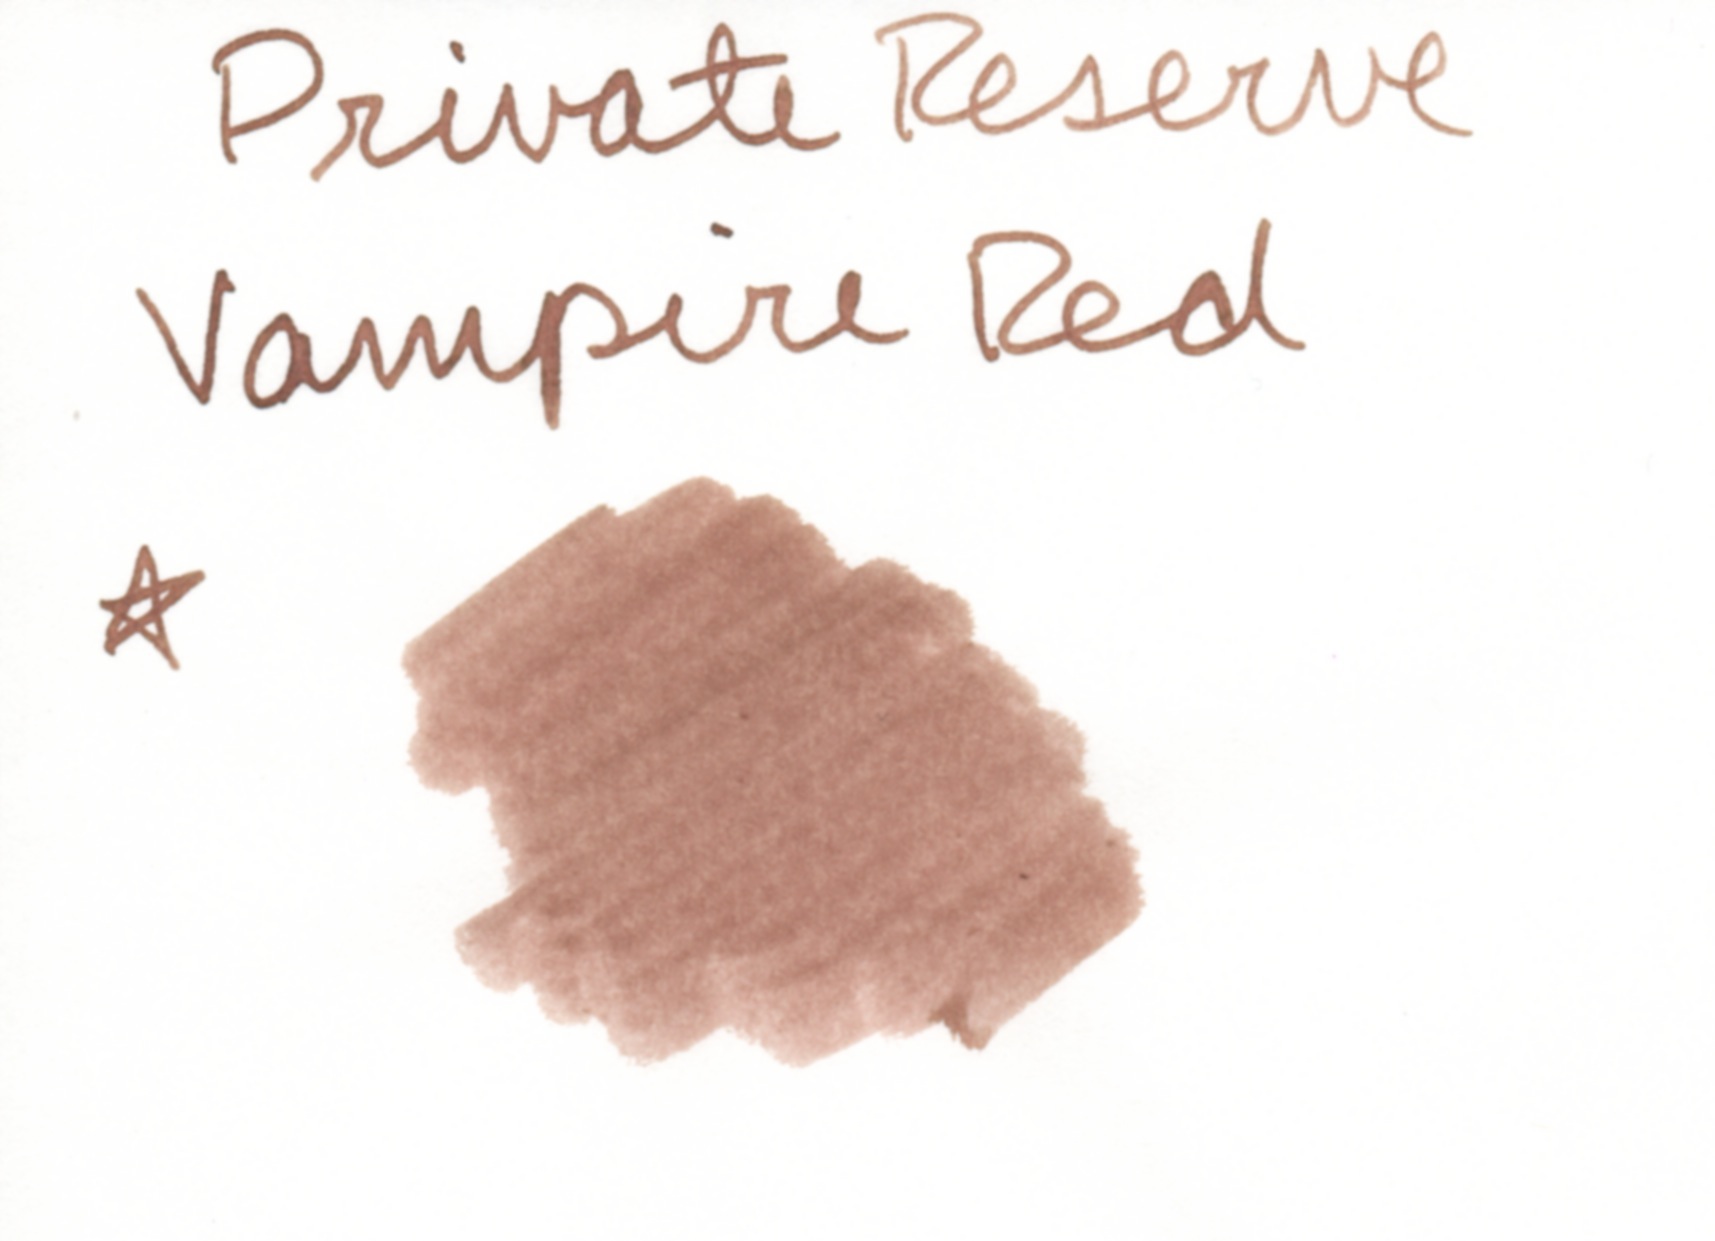 Private Reserve
Vampire Red